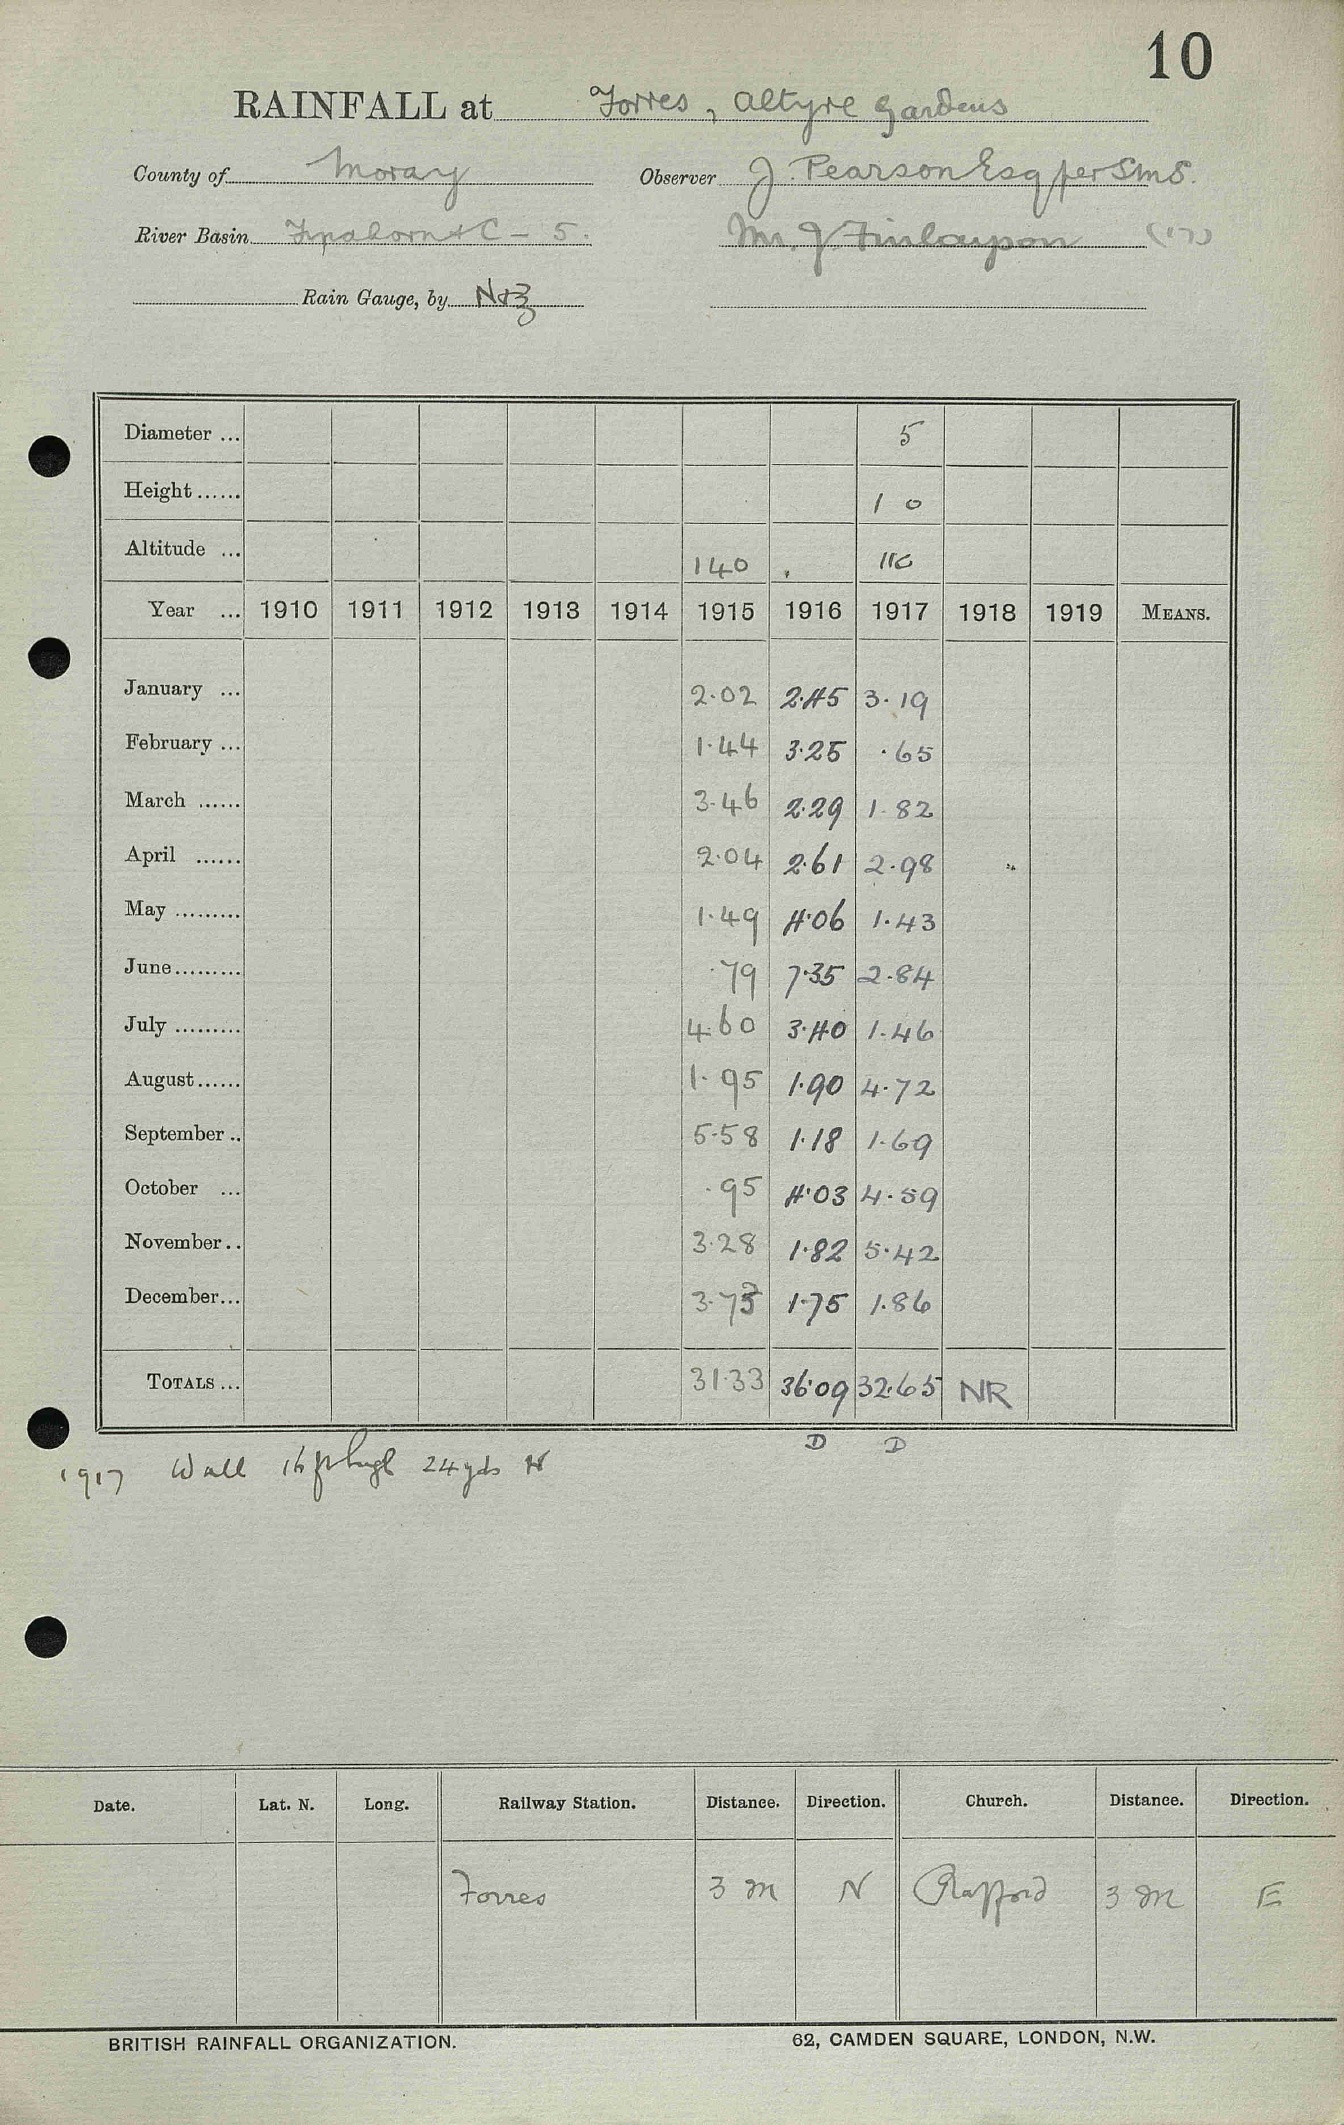 10
RAINFALL at Forres, Altyre Gardens
County of Moray Observer J. Pearson Esq per SMS.
River Basin Findhorn &C - 5. Mr. J. Finlayson ('17)
Rain Gauge, by N&Z
Diameter ... 5
Height...... 1 0
Altitude ... 140 110
Year ... 1910 1911 1912 1913 1914 1915 1916 1917 1918 1919 MEANS.
January ... 2.02 2.45 3.19
February ... 1.44 3.25 .65
March ...... 3.46 2.29 1.82
April ...... 2.04 2.61 2.98
May ......... 1.49 4.06 1.43
June......... .79 7.35 2.84
July ......... 4.60 3.40 1.46
August...... 1.95 1.90 4.72
September .. 5.58 1.18 1.69
October ... .95 4.03 4.59
November.. 3.28 1.82 5.42
December... 3.73 1.75 1.86
TOTALS ... 31.33 36.09 32.65 NR
D D
1917 Wall 16 ft high 24 yds N
Date. Lat. N. Long. Railway Station. Distance. Direction. Church. Distance. Direction.
Forres 3 M N Rafford 3 M E
BRITISH RAINFALL ORGANIZATION. 62, CAMDEN SQUARE, LONDON, N.W.